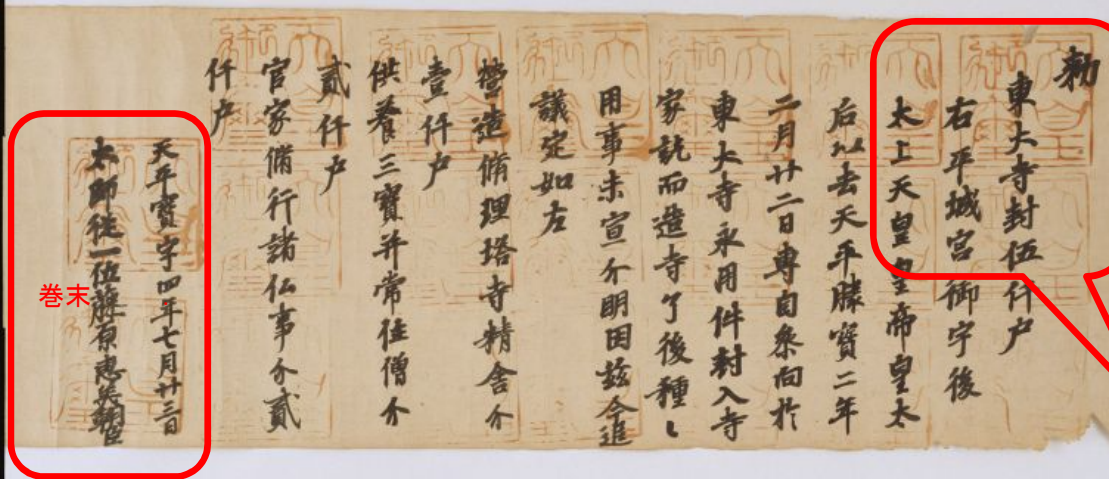 勅
東大寺封伍仟戸
右平城宮御宇後
太上天皇皇帝皇太
后以去天平勝寶二年
二月廿二日専自参向於
東大寺永用件封入寺
家訖而造寺了後種〻
用事未宣分明因茲今追
議定如左
營造修理塔寺精舎分
壹仟戸
供養三寶并常住僧分
貳仟戸
官家修行諸仏事分貳
仟戸
天平寶字四年七月廿三日
太師従一位藤原恵美朝臣
巻末